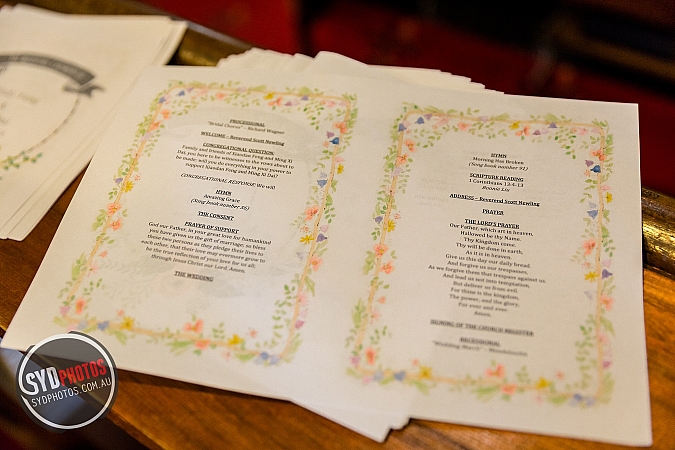 PROCESSIONAL
"Bridal Chorus" – Richard Wagner
WELCOME – Reverend Scott Newling
CONGREGATIONAL QUESTION:
Family and friends of Xiaodan Feng and Ming Xi
Dai, you have to be witnesses to the vows about to
be made: will you do everything in your power to
support Xiaodan Feng and Ming Xi Dai?
CONGREGATIONAL RESPONSE: We will
HYMN
Amazing Grace
(Song book number 36)
THE CONSENT
PRAYER OF SUPPORT
God our Father, in your great love for humankind
you have given us the gift of marriage; so bless
these two persons as they pledge their lives to
each other, that their love may evermore grow to
be a true reflection of your love for us all;
through Jesus Christ our Lord. Amen.
THE WEDDING
HYMN
Morning Has Broken
(Song book number 91)
SCRIPTURE READING
1 Corinthians 13:4-13
Ronnie Liu
ADDRESS – Reverend Scott Newling
PRAYER
THE LORD'S PRAYER
Our Father, which art in heaven,
Hallowed be thy Name.
Thy Kingdom come.
Thy will be done in earth,
As it is in heaven.
Give us this day our daily bread
And forgive us our trespasses,
As we forgive them that trespass against us.
And lead us not into temptation,
But deliver us from evil.
For thine is the kingdom,
The power, and the glory,
For ever and ever.
Amen.
SIGNING OF THE CHURCH REGISTER
RECESSIONAL
"Wedding March" – Mendelssohn
SYDPHOTOS
SYDPHOTOS.COM.AU